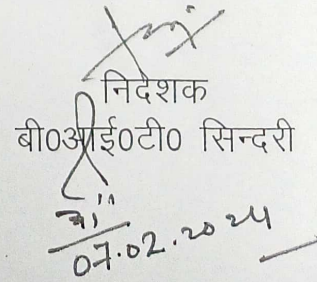 निदेशक
बी०आई०टी० सिन्दरी
07.02.2024